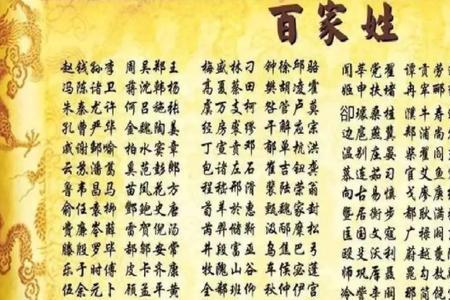 赵钱孙李 周吴郑王 梅盛林刁 钟徐邱骆 闻莘党翟 谭贡劳
冯陈褚卫 蒋沈韩杨 高夏蔡田 樊胡凌霍 姬申扶堵 冉宰郦
朱秦尤许 何吕施张 虞万支柯 昝管卢莫 郤璩桑桂 濮牛寿
孔曹严华 金魏陶姜 经房裘缪 干解应宗 边扈燕冀 郏浦尚
戚谢邹喻 柏水窦章 丁宣贲邓 郁单杭洪 温别庄晏 柴瞿阎
云苏潘葛 奚范彭郎 包诸左石 崔吉钮龚 慕连茹习 宦艾鱼
鲁韦昌马 苗凤花方 程嵇邢滑 裴陆荣翁 向古易慎 戈廖庾
俞任袁柳 酆鲍史唐 荀羊於惠 甄曲家封 暨居衡步 都耿满
费廉岑薛 雷贺倪汤 芮羿储靳 汲邴糜松 匡国文寇 广禄阙
滕殷罗毕 郝邬安常 井段富巫 乌焦巴弓 欧殳沃利 蔚越夔
乐于时傅 皮卞齐康 牧隗山谷 车侯宓蓬 师巩厍聂 晁勾敖
伍余元卜 顾孟平黄 全郗班仰 秋仲伊宫 冷訾辛阚 那简饶
百家姓